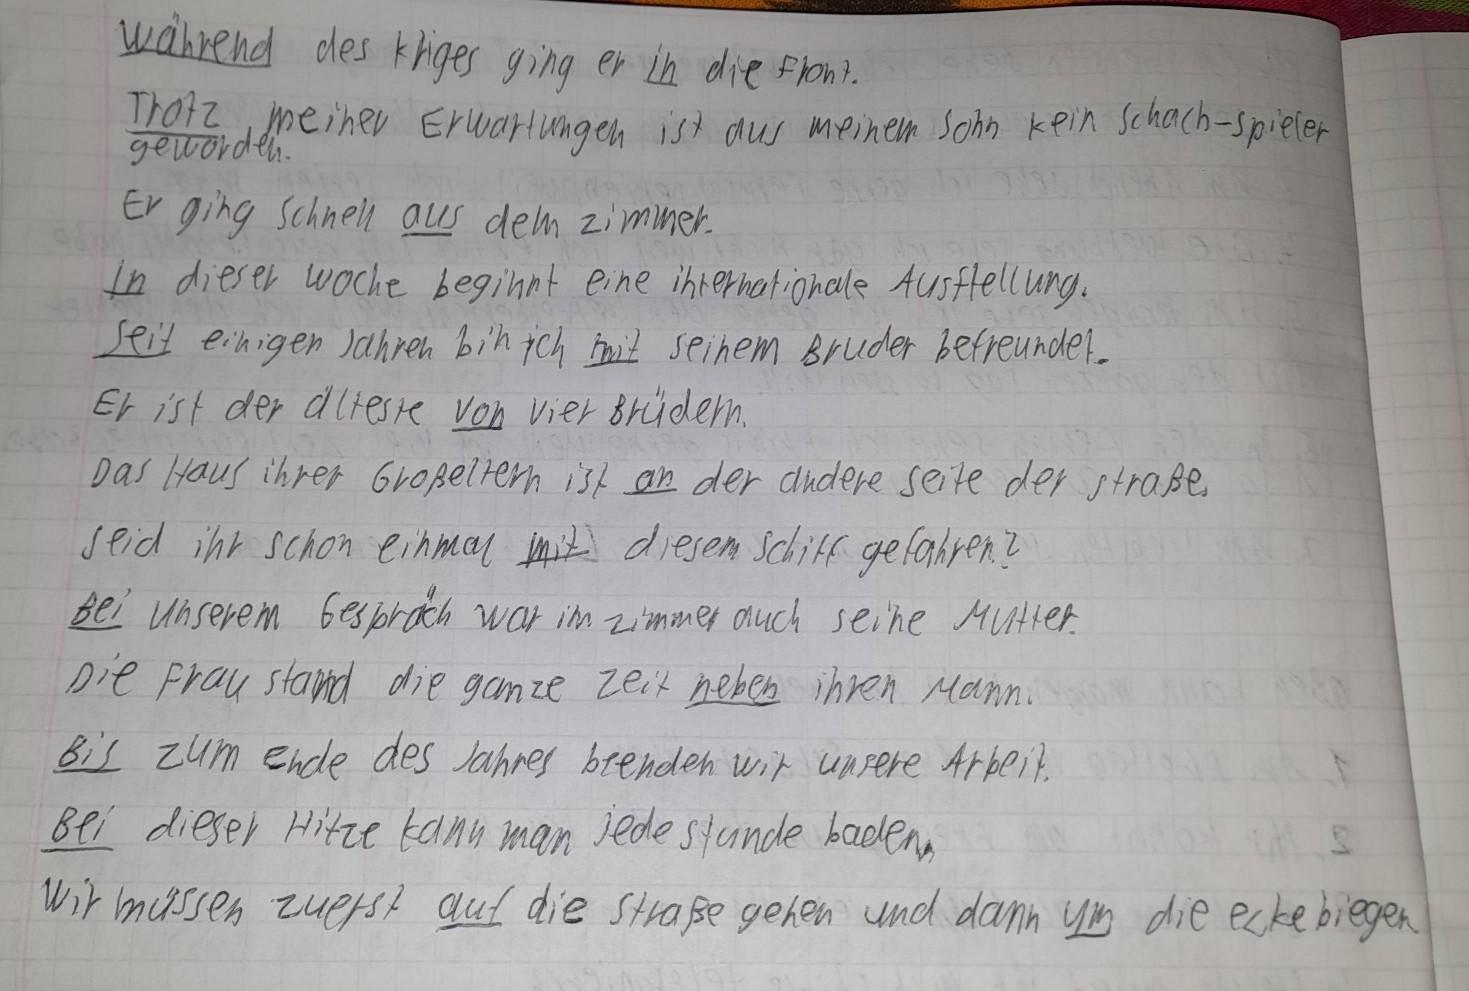 während des kriges ging er in die Front.
Trotz meiner Erwartungen ist aus meinem sohn kein schach-spieler
geworden.
Er ging schnell aus dem zimmer.
In dieser woche beginnt eine internationale Ausstellung.
Seit einigen Jahren bin ich mit seinem Bruder befreundet.
Er ist der älteste von vier Brüdern.
Das Haus ihrer Großeltern ist an der andere seite der straße.
seid ihr schon einmal mit diesem schiff gefahren?
Bei unserem Gespräch war im zimmer auch seine Mutter.
Die Frau stand die ganze zeit neben ihren Mann.
Bis zum ende des Jahres beenden wir unsere Arbeit.
Bei dieser Hitze kann man jede stunde baden.
Wir müssen zuerst auf die straße gehen und dann um die ecke biegen